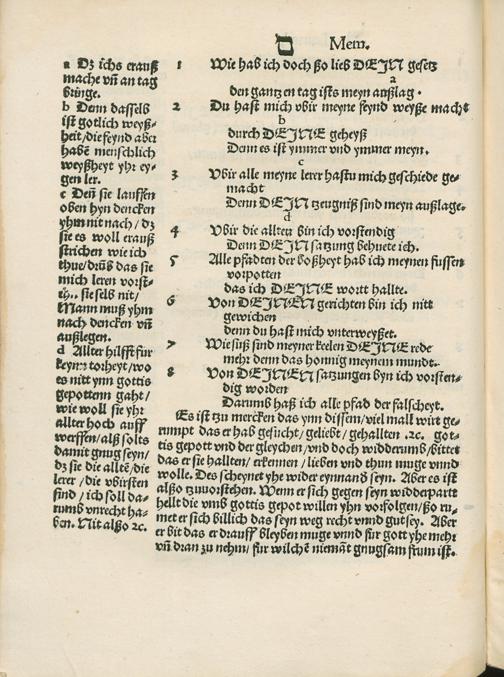 ם Mem.
a Dz ichs erauß
mache vn̄ an tag
bringe.
b Denn dasselb
ist gotlich weyß-
heit / die feynd aber
habē menschlich
weyßheyt yhr ey-
gen ler.
c Deñ sie lauffen
oben hyn dencken
yhm nit nach / dz
sie es woll erauß
strichen wie ich
thue / drūb das sie
mich leren vorst-
sie selb nit /
Mann muß yhm
nach dencken vn̄
außlegen.
d Allter hilfft fur
keynn torheyt / wo
es nitt ynn gottis
gepottenn gaht /
wie woll sie yhr
allter hoch auff
werffen / alß solts
damit gnug seyn /
dz sie die alltē / die
lerer / die vbirsten
sind / ich soll da-
rumb vnrecht ha-
ben. Nit alßo ꝛc.
1 Wie hab ich doch ßo lieb DEIN gesetz
a
den gantzen tag ists meyn außlag.
2 Du hast mich vbir meyne feynd weyße macht
b
durch DEINE geheyß
Denn es ist ymmer vnd ymmer meyn.
c
3 Vbir alle meyne lerer hastu mich geschickt ge-
macht
Denn DEIN tzeugniß sind meyn außlage.
d
4 Vbir die allten bin ich vorstendig
Denn DEIN satzung behuete ich.
5 Alle pfadten der boßheyt hab ich meynen fussen
vorpotten
das ich DEINE wortt hallte.
6 Von DEINEN gerichten bin ich nitt
gewichen
denn du hast mich vnterweyßet.
7 Wie süß sind meyner keelen DEINE rede
mehr denn das honnig meynem mundt.
8 Von DEINEN satzungen byn ich vorsten-
dig worden
Darumb haß ich alle pfad der falscheyt.
Es ist tzu mercken das ynn dissem / viel mall wirt ge-
rumpt das er hab gesucht / geliebt / gehallten .ꝛc. got-
tis gepott vnd der gleychen / vnd doch widderumb / bittet
das er sie hallten / erkennen / lieben vnd thun muge vnnd
wolle. Des scheynet yhe wider eynnand̄ seyn. Aber es ist
alßo tzuuorstehen. Wenn er sich gegen seyn widderpartt
hellt die vmb gottis gepot willen yhn vorfolgen / ßo ru-
met er sich billich das seyn weg recht vnnd gut sey. Aber
er bit das er drauff bleyben muge vnnd fur gott yhe mehr
vn̄ dran zu nehm / fur wilchē niemāt gnugsam frum ist.